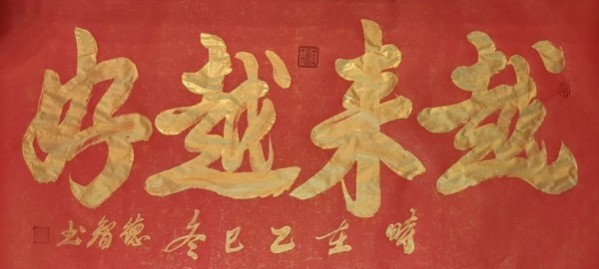 越来越好
时在乙巳冬德智书